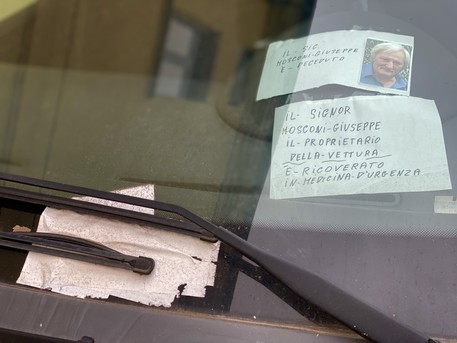 IL- SIG.
MOSCONI-GIUSEPPE
E- DECEDUTO
IL- SIGNOR
MOSCONI-GIUSEPPE
IL-PROPRIETARIO
DELLA-VETTURA
E-RICOVERATO
IN-MEDICINA-D'URGENZA